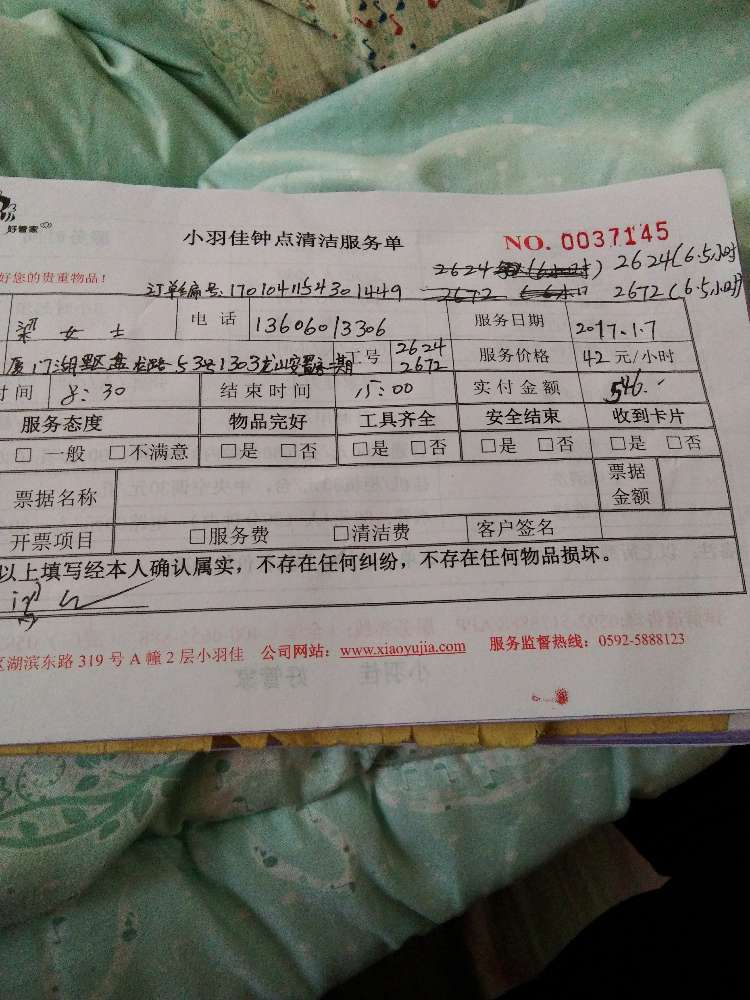 好管家
小羽佳钟点清洁服务单 NO. 0037145
好您的贵重物品!
2624 2624(6.5小时)
订单编号:1701041154301449 2672 2672(6.5小时)
梁女士 电话 13606013306 服务日期 2017.1.7
厦门湖里区 路53号1303龙山 期 工号 2624 2672 服务价格 42元/小时
时间 8:30 结束时间 15:00 实付金额 546.
服务态度 物品完好 工具齐全 安全结束 收到卡片
□ 一般 □不满意 □是 □否 □是 □否 □是 □否 □是 □否
票据名称 票据金额
开票项目 □服务费 □清洁费 客户签名
以上填写经本人确认属实,不存在任何纠纷,不存在任何物品损坏。
区湖滨东路 319 号 A 幢 2 层小羽佳 公司网站:www.xiaoyujia.com 服务监督热线:0592-5888123
小羽佳 好管家